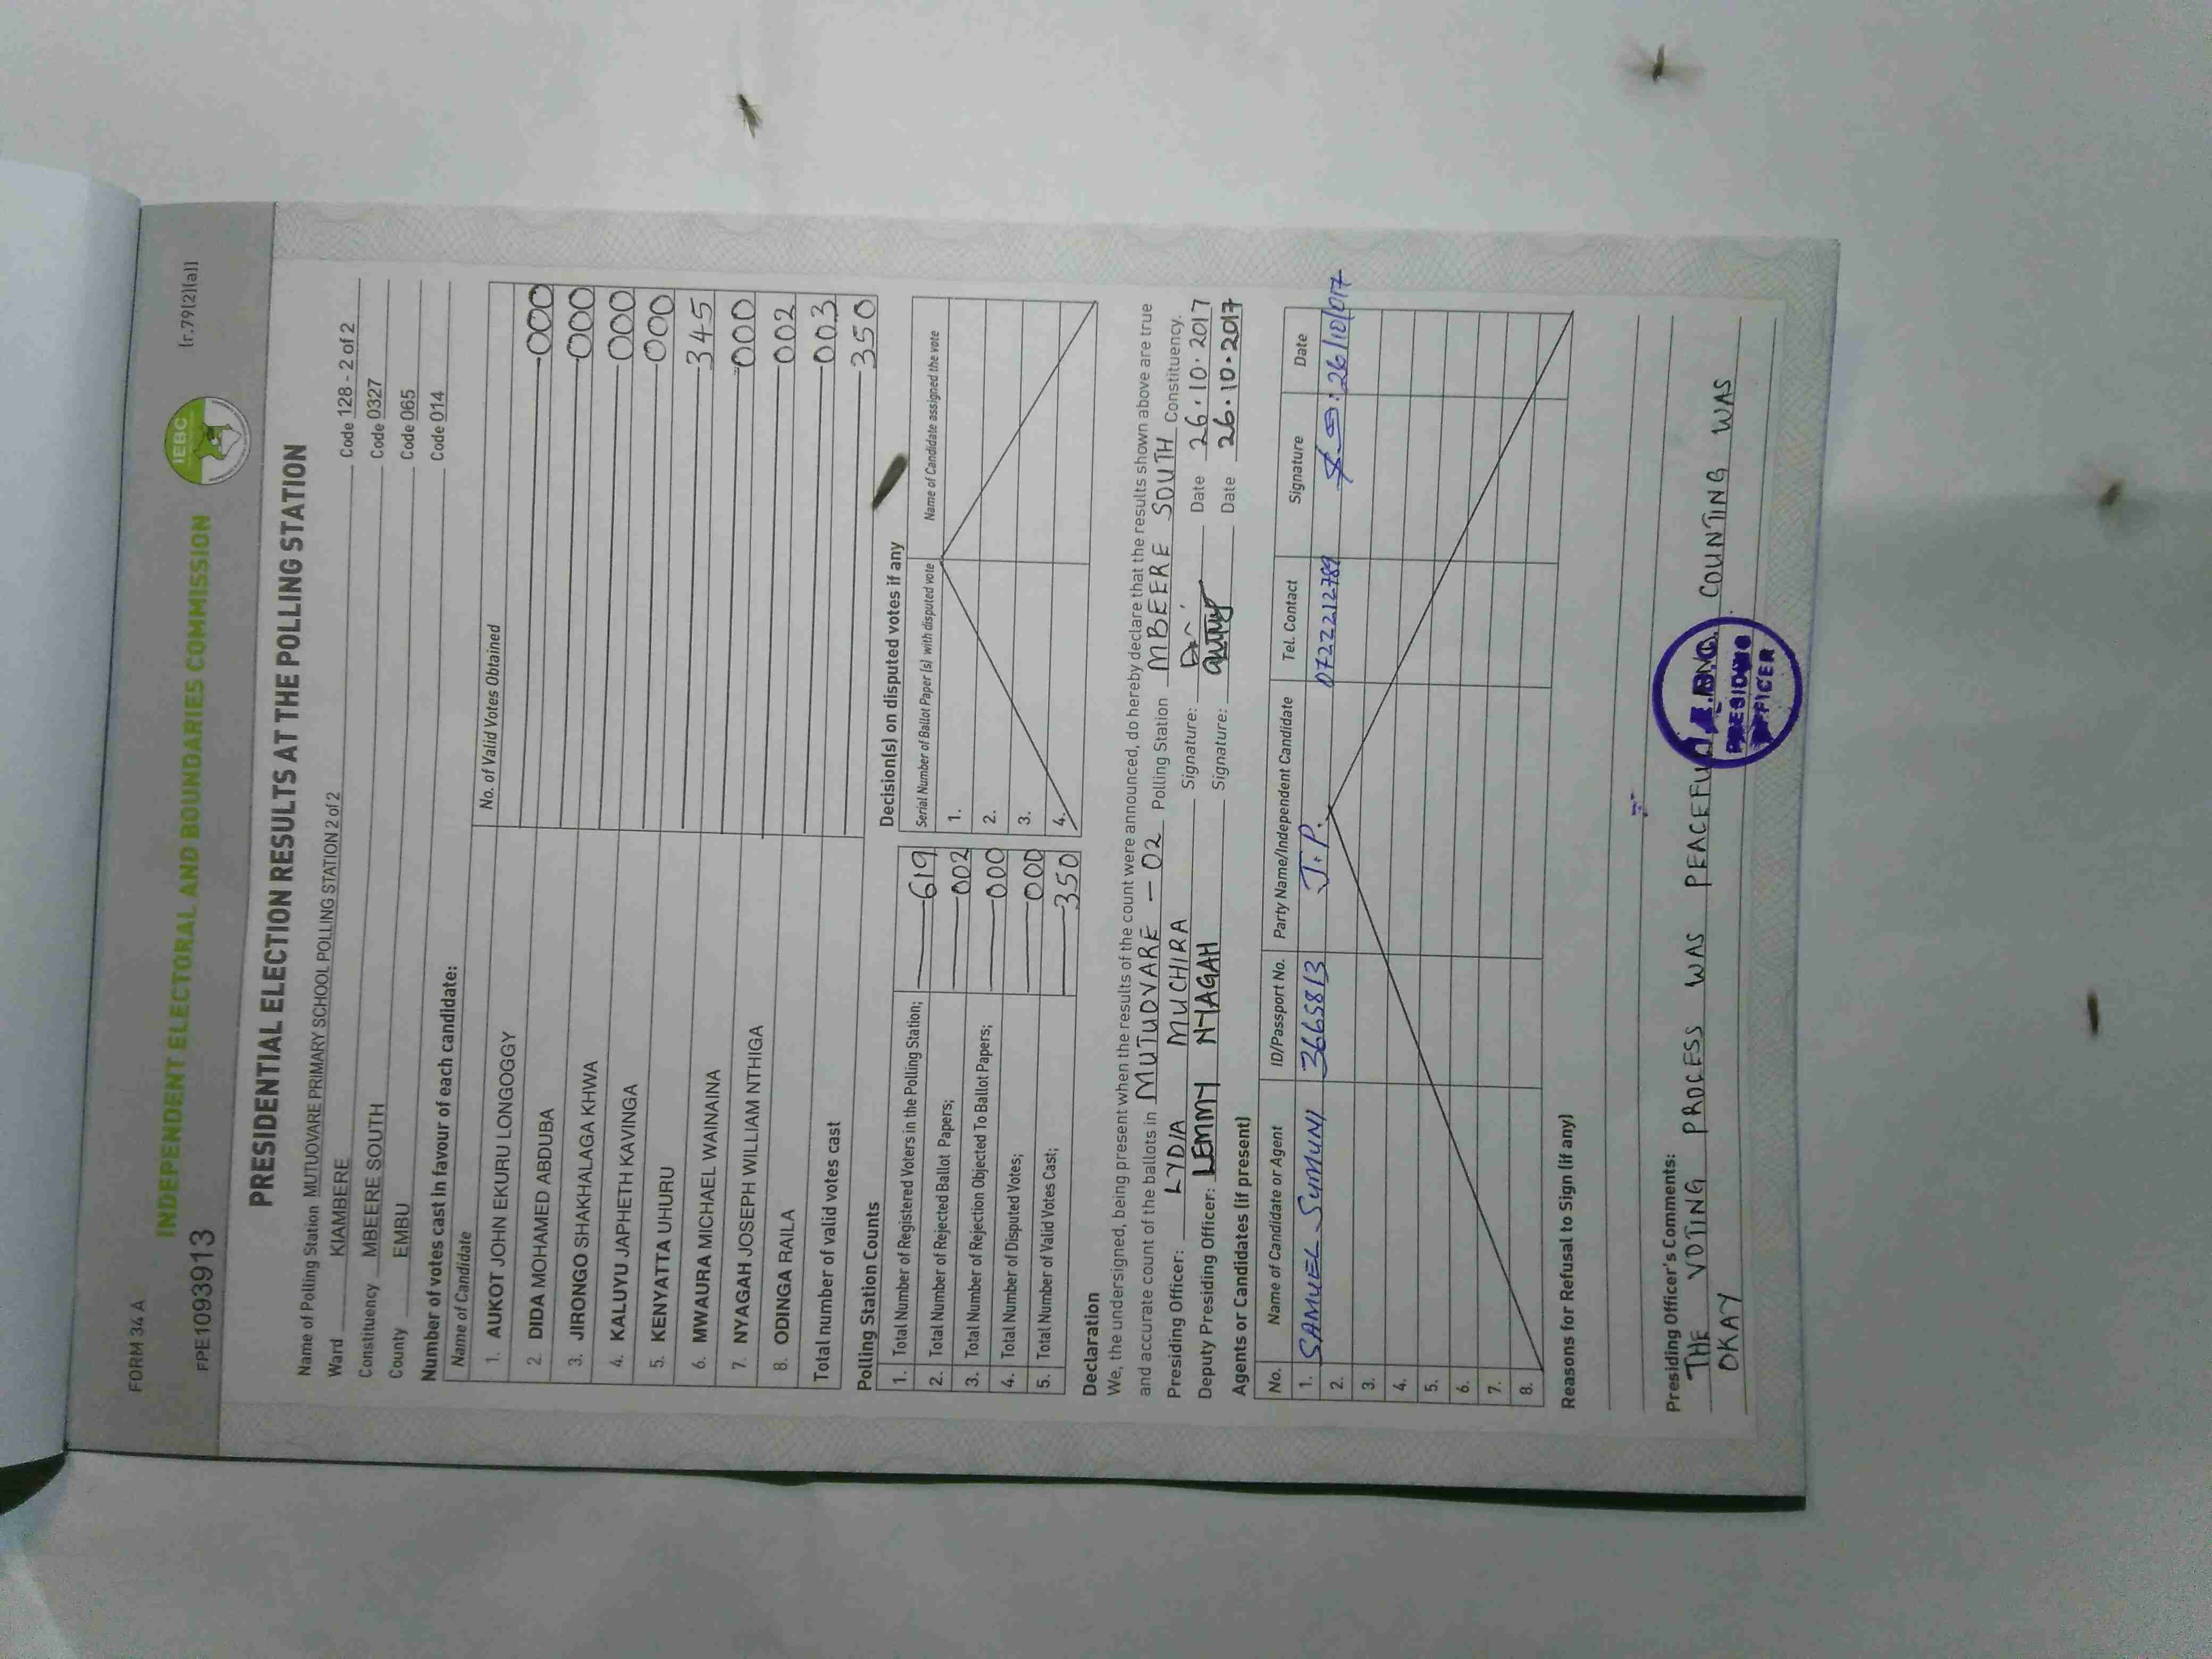 FORM 34 A
INDEPENDENT ELECTORAL AND BOUNDARIES COMMISSION
IEBC
(r.79(2)(a))
FPE1093913
PRESIDENTIAL ELECTION RESULTS AT THE POLLING STATION
Name of Polling Station MUTUOVARE PRIMARY SCHOOL POLLING STATION 2 of 2 Code 128 - 2 of 2
Ward KIAMBERE Code 0327
Constituency MBEERE SOUTH Code 065
County EMBU Code 014
Number of votes cast in favour of each candidate:
Name of Candidate No. of Valid Votes Obtained
1. AUKOT JOHN EKURU LONGOGGY 000
2 DIDA MOHAMED ABDUBA 000
3. JIRONGO SHAKHALAGA KHWA 000
4. KALUYU JAPHETH KAVINGA 000
5. KENYATTA UHURU 345
6. MWAURA MICHAEL WAINAINA 000
7. NYAGAH JOSEPH WILLIAM NTHIGA 002
8. ODINGA RAILA 003
Total number of valid votes cast 350
Polling Station Counts
1. Total Number of Registered Voters in the Polling Station; 619
2. Total Number of Rejected Ballot Papers; 002
3. Total Number of Rejection Objected To Ballot Papers; 000
4. Total Number of Disputed Votes; 000
5. Total Number of Valid Votes Cast; 350
Decision(s) on disputed votes if any
Serial Number of Ballot Paper (s) with disputed vote Name of Candidate assigned the vote
1.
2.
3.
4.
Declaration
We, the undersigned, being present when the results of the count were announced, do hereby declare that the results shown above are true
and accurate count of the ballots in MUTUOVARE - 02 Polling Station MBEERE SOUTH Constituency.
Presiding Officer: LYDIA MUCHIRA Signature: Date 26.10.2017
Deputy Presiding Officer: LEMMY NYAGAH Signature: Date 26.10.2017
Agents or Candidates (if present)
No. Name of Candidate or Agent ID/Passport No. Party Name/Independent Candidate Tel. Contact Signature Date
1. SAMUEL SUMUNI 36665813 J.P. 0722212789 26/10/017
2.
3.
4.
5.
6.
7.
8.
Reasons for Refusal to Sign (if any)
Presiding Officer's Comments:
THE VOTING PROCESS WAS PEACEFUL COUNTING WAS
OKAY
PRESIDING
OFFICER